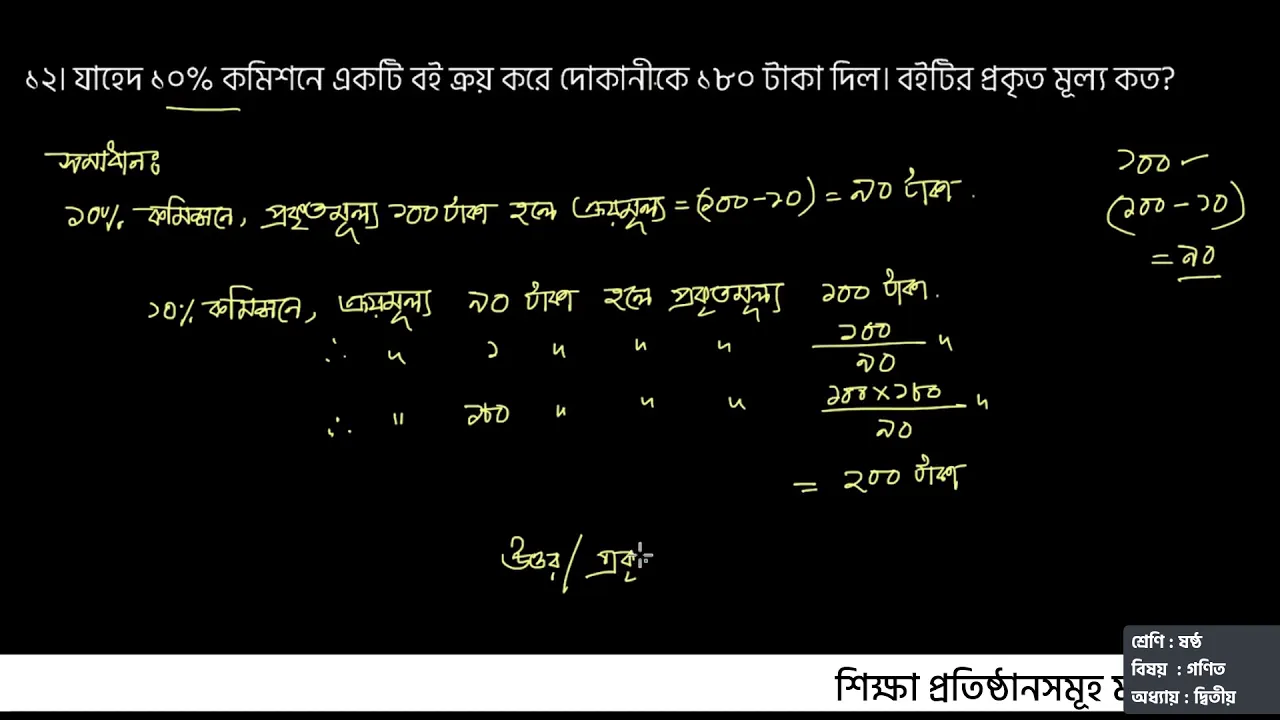 ১২। যাহেদ ১০% কমিশনে একটি বই ক্রয় করে দোকানীকে ১৮০ টাকা দিল। বইটির প্রকৃত মূল্য কত?
সমাধানঃ
১০% কমিশনে, প্রকৃতমূল্য ১০০ টাকা হলে ক্রয়মূল্য = (১০০-১০) = ৯০ টাকা.
১০০
(১০০ - ১০)
= ৯০
১০% কমিশনে, ক্রয়মূল্য ৯০ টাকা হলে প্রকৃতমূল্য ১০০ টাকা.
∴ " ১ " " " ১০০/৯০ "
∴ " ১৮০ " " " ১০০×১৮০/৯০ "
= ২০০ টাকা
উত্তর/ প্রকৃ
শ্রেণি : ষষ্ঠ
বিষয় : গণিত
অধ্যায় : দ্বিতীয়
শিক্ষা প্রতিষ্ঠানসমূহ